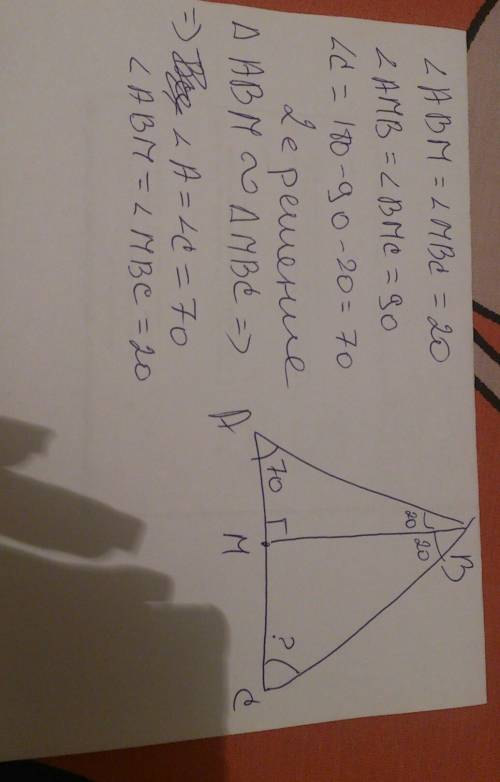 ∠ABM = ∠MBC = 20
∠AMB = ∠BMC = 90
∠C = 180 - 90 - 20 = 70
2е решение
Δ ABM ∾ Δ MBC =>
=> ∠A = ∠C = 70
∠ABM = ∠MBC = 20
B
20
20
A
70
M
?
C